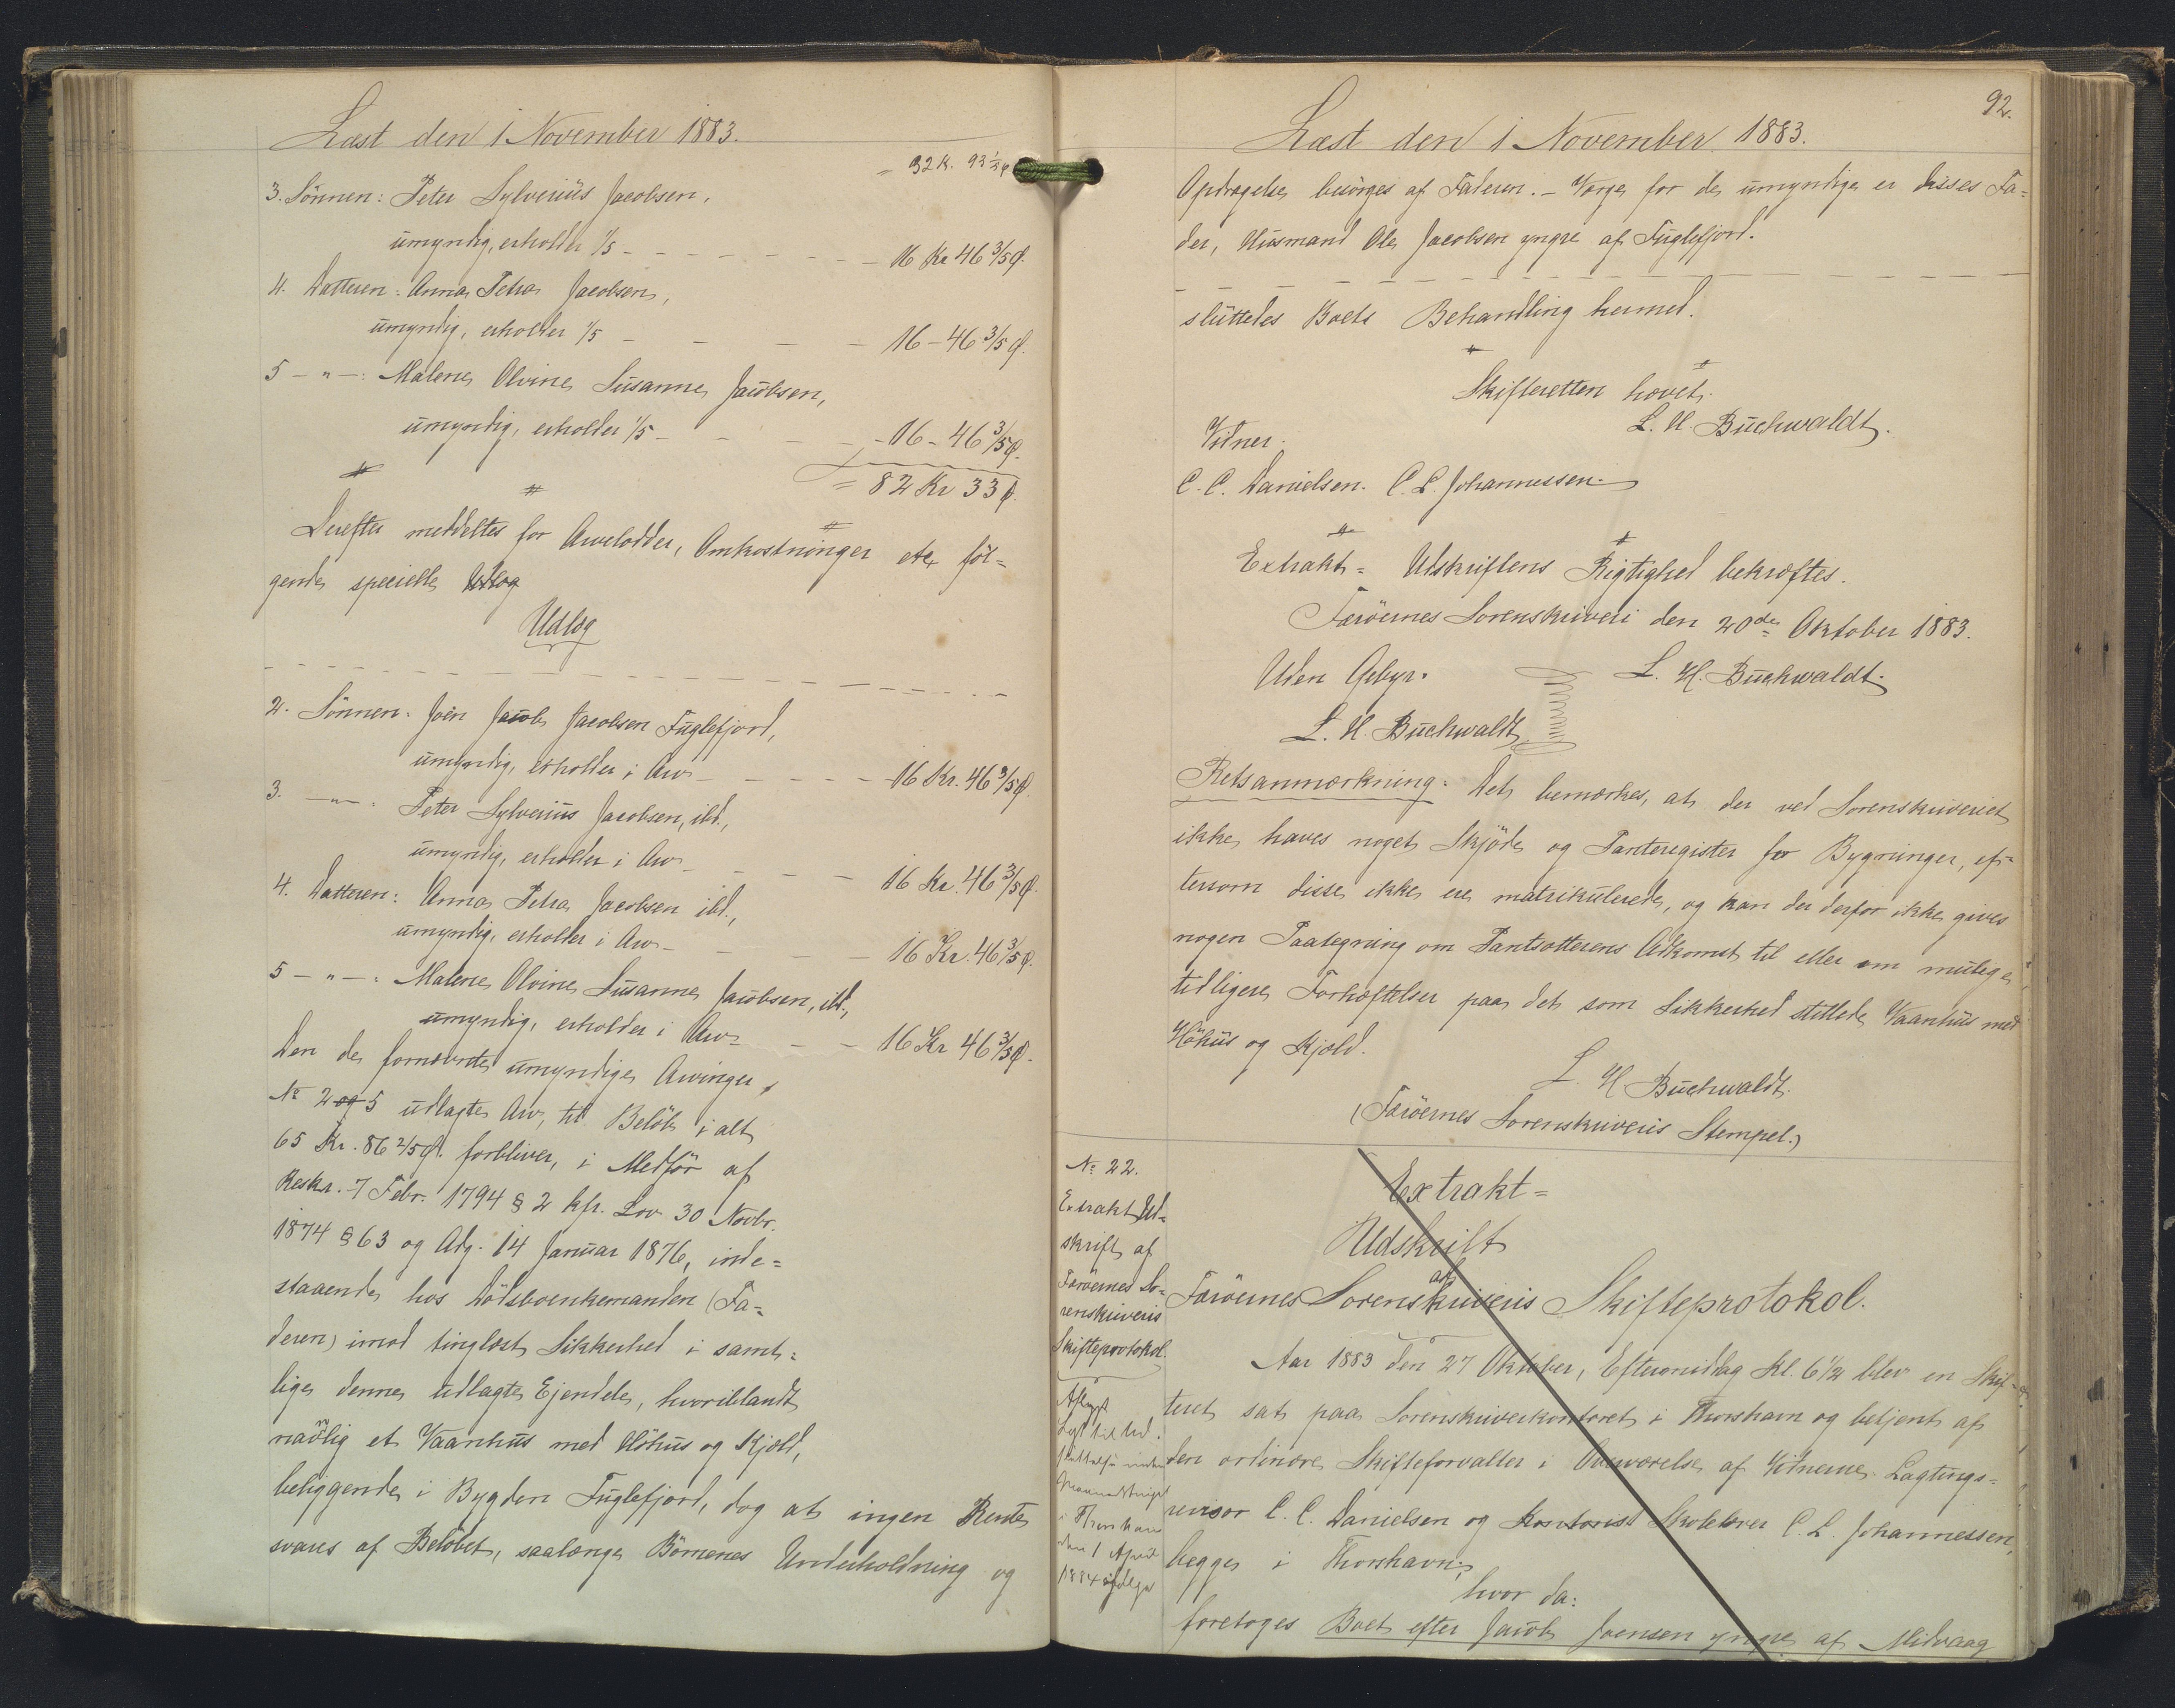 Læst den 1 November 1883.
= 32 K. 93 1/5 ø
3. Sönnen: Peter Sylverius Jacobsen,
umyndig, erholder 1/5 - - - - - - - 16 Kr 46 3/5 Ø.
4. Datteren: Anna Petra Jacobsen,
umyndig, erholder 1/5 - - - - 16 - 46 3/5 Ø.
5 - " -: Malene Olvine Susanne Jacobsen,
umyndig, erholder 1/5 - - - - 16 - 46 3/5 Ø.
= 82 Kr 33 Ø.
Derefter meddeltes for Arvelodder, Omkostninger etc föl=
gende specielle Udlog
Udlæg
2. Sönnen: Joen Jacob Jacobsen Fuglefjord,
umyndig, erholder i Arv - - - - - 16 Kr. 46 3/5 Ø.
3. - " - : Peter Sylverius Jacobsen, ibd.,
umyndig, erholder i Arv - - - - 16 Kr. 46 3/5 Ø.
4. Datteren: Anna Petra Jacobsen ibd.,
umyndig, erholder i Arv - - - - 16 Kr. 46 3/5 Ø.
5 - " - : Malene Olvine Susanne Jacobsen, ibd.,
umyndig, erholder i Arv - - - 16 Kr 46 3/5 Ø.
Den de fornævnte umyndige Arvinger,
No 2 og 5 udlagte Arv, til Belöb i alt
65 Kr. 86 2/5 Ø. forbliver, i Medför af
Reskr. 7 Febr. 1794 § 2 kfr. Lov 30 Novbr.
1874 § 63 og Adg. 14 Januar 1876, inde=
staaende hos Dödsboenkemanden (Fa=
deren) imod tinglæst Sikkerhed i samt=
lige denne udlagte Ejendele, hvoriblandt
navnlig et Vaanhus med Höhus og Kjold,
beliggende i Bygden Fuglefjord, dog at ingen Rente
svares af Belöbet, saalænge Börnenes Underholdning og
92.
Læst den 1 November 1883.
Opdragelse besörges af Faderen. - Værge for de umyndige er disses Fa=
der, Husmand Ole Jacobsen yngre af Fuglefjord.
sluttedes Boets Behandling hermed.
Skifteretten hævet.
L. H. Buchwaldt.
Vidner.
C. C. Danielsen. C. L. Johannessen.
Extrakt= Udskriftens Rigtighed bekræftes.
Færöernes Sorenskriveri den 20de Oktober 1883.
Uden Gebyr. L. H. Buchwaldt.
L. H. Buchwaldt.
Retsanmærkning: Det bemærkes, at der ved Sorenskriveriet
ikke haves noget Skjöde og Panteregister for Bygninger, ef=
tersom disse ikke ere matrikulerede, og kan der derfor ikke gives
nogen Paategning om Pantsætterens Adkomst til eller om mulige
tidligere Forhæftelser paa det som Sikkerhed stillede Vaanhus med
Höhus og Kjold.
L. H Buchwaldt.
(Færöernes Sorenskriveris Stempel.)
No 22.
Extrakt Ud=
skrift af
Færöernes So=
renskriveris
Skifteprotokol.
Aflyst
Lyst til Ud=
slettelse
i Thorshavn
den 1 April
1884
Extrakt=
Udskrift
af
Færöernes Sorenskriveris Skifteprotokol.
Aar 1883 den 27 Oktober, Eftermiddag Kl. 6 1/2 blev en Skif=
teret sat paa Sorenskriverkontoret i Thorshavn og betjent af
den ordinære Skifteforvalter i Overværelse af Vidnerne Lagtings=
revisor C. C. Danielsen og Kontorist Skolelærer C. L. Johannessen,
begge i Thorshavn;
hvor da:
foretoges Boet efter Jacob Joensen yngre af Midvaag